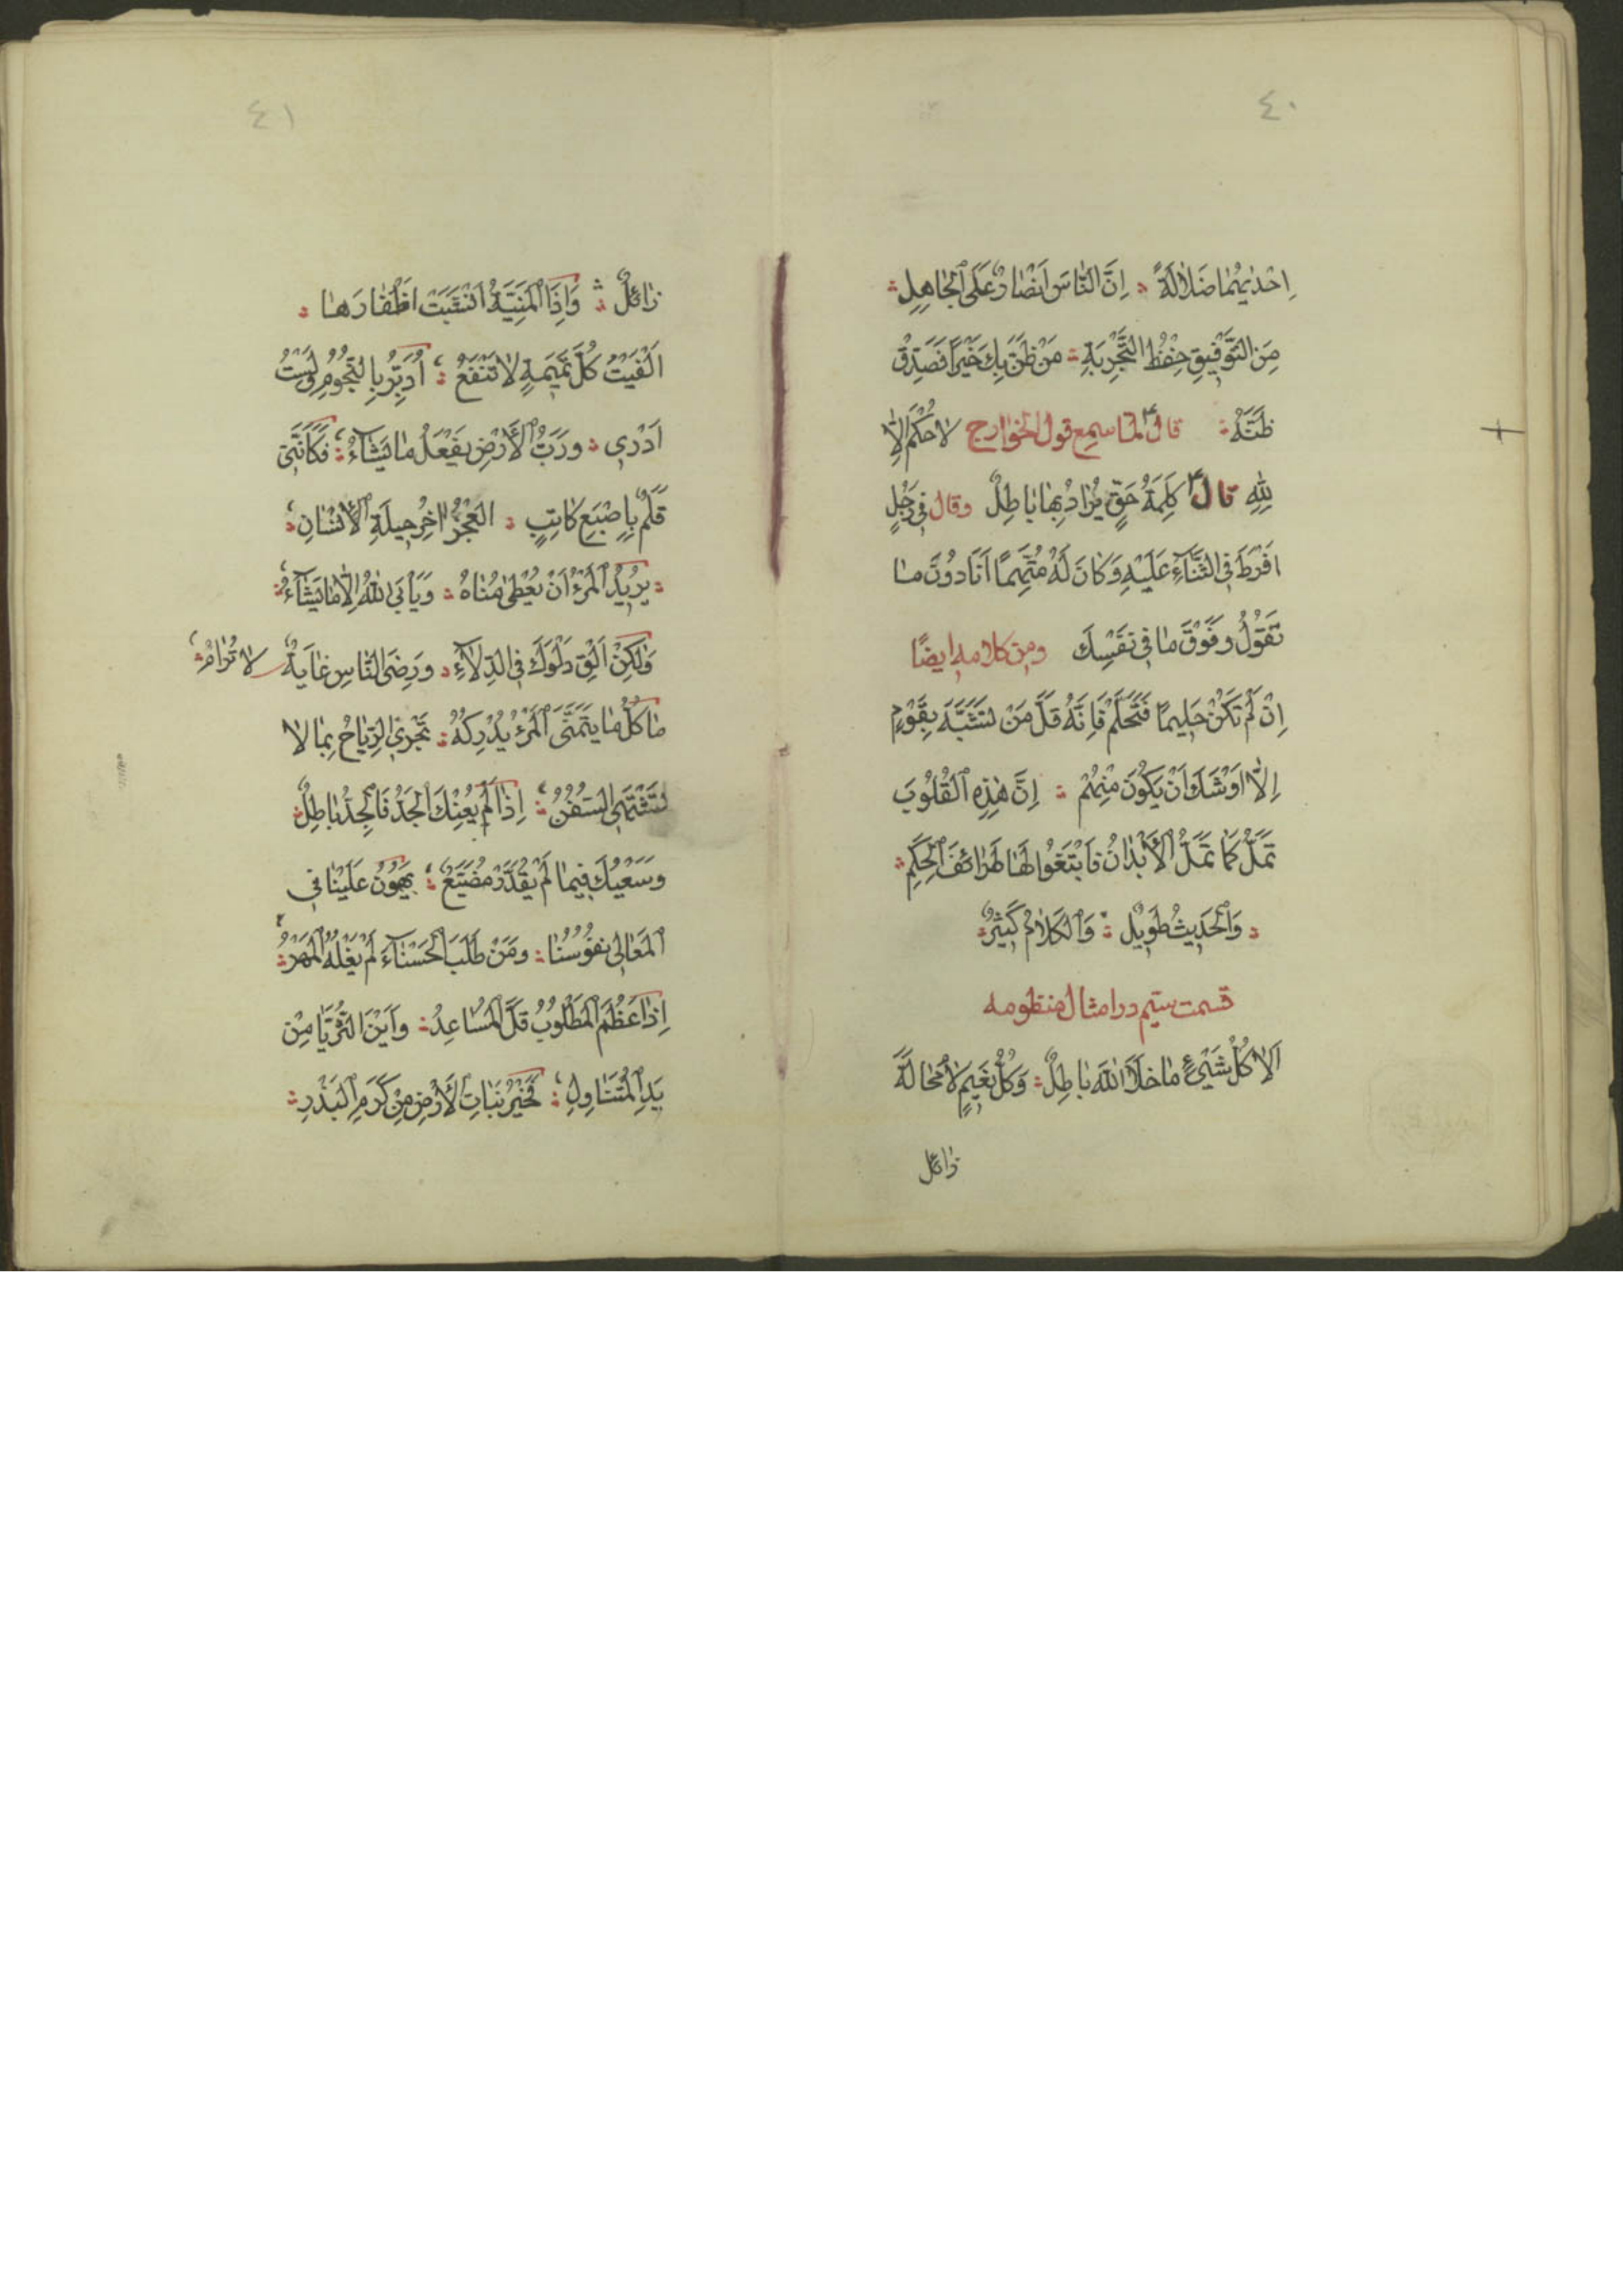 ٤٠
اِحْدٰیهُمٰا ضَلٰالَةً ؞ اِنَّ النّٰاسَ اَنْصٰارٌ عَلَی الْجٰاهِلِ ؞
مِنَ التَّوْفِیقِ حِفْظُ التَّجْرِبَةِ ؞ مَنْ ظَنَّ بِكَ خَیْرًا فَصَدِّقْ
ظَنَّهُ ؞ قال ع لمّا سمع قول الخوارج لاٰ حُكْمَ اِلّٰا
لِلّٰهِ قال ع كَلِمَةُ حَقٍّ یُرٰادُ بِهٰا بٰاطِلٌ وقال فی رَجُلٍ
اَفْرَطَ فِی الثَّنٰآءِ عَلَیْهِ وَكٰانَ لَهُ مُتَّهِمًا اَنَا دُونَ مٰا
تَقُولُ وَفَوْقَ مٰا فِی نَفْسِكَ ومن كلامه ایضًا
اِنْ لَمْ تَكُنْ حَلِیمًا فَتَحَلَّمْ فَاِنَّهُ قَلَّ مَنْ تَشَبَّهَ بِقَوْمٍ
اِلّٰا اَوْشَكَ اَنْ یَكُونَ مِنْهُمْ ؞ اِنَّ هٰذِهِ الْقُلُوبَ
تَمَلُّ كَمٰا تَمَلُّ الْأَبْدٰانُ فَابْتَغُوا لَهٰا طَرٰائِفَ الْحِكَمِ ؞
؞ وَالْحَدِیثُ طَوِیلٌ ؞ وَالْكَلٰامُ كَثِیرٌ ؞
قسمت سیّم در امثال منظومه
اَلٰا كُلُّ شَیْءٍ مٰا خَلَا اللّٰهَ بٰاطِلٌ ؞ وَكُلُّ نَعِیمٍ لٰا مَحٰالَةَ
زٰائل
٤١
زٰائِلٌ ؞ وَاِذَا الْمَنِیَّةُ اَنْشَبَتْ اَظْفٰارَهٰا ؞
اَلْفَیْتَ كُلَّ تَمِیمَةٍ لٰا تَنْفَعُ ؞ اُدَبِّرُ بِالنُّجُومِ وَلَسْتُ
اَدْرِی ؞ وَرَبُّ الْأَرْضِ یَفْعَلُ مٰا یَشٰآءُ ؞ فَكَأَنَّنِی
قَلَمٌ بِاِصْبَعِ كٰاتِبٍ ؞ العَجْزُ اٰخِرُ حِیلَةِ الْأِنْسٰانِ ؞
؞ یُرِیدُ الْمَرْءُ اَنْ یُعْطیٰ مُنٰاهُ ؞ وَیَأْبَی اللّٰهُ اِلّٰا مٰا یَشٰآءُ ؞
وَلٰكِنْ اَلْقِ دَلْوَكَ فِی الدِّلٰآءِ ؞ وَرِضَی النّٰاسِ غٰایَةٌ لٰا تُرٰامُ ؞
مٰا كُلُّ مٰا یَتَمَنَّی الْمَرْءُ یُدْرِكُهُ ؞ تَجْرِی الرِّیٰاحُ بِمٰا لٰا
تَشْتَهِی السُّفُنُ ؞ اِذٰا لَمْ یُعِنْكَ الْجَدُّ فَالْجِدُّ بٰاطِلٌ ؞
وَسَعْیُكَ فِیمٰا لَمْ یُقَدَّرْ مُضَیَّعٌ ؞ یَهُونُ عَلَیْنٰا فِی
الْمَعٰالِی نُفُوسُنٰا ؞ وَمَنْ طَلَبَ الْحَسْنٰآءَ لَمْ یُغْلِهُ الْمَهْرُ ؞
اِذٰا عَظُمَ الْمَطْلُوبُ قَلَّ الْمُسٰاعِدُ ؞ وَاَیْنَ الثُّرَیّٰا مِنْ
یَدِ الْمُتَنٰاوِلِ ؞ فَخَیْرُ نَبٰاتِ الْأَرْضِ مِنْ كَرَمِ الْبَذْرِ ؞